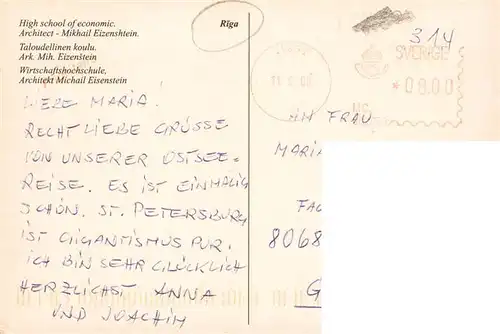 High school of economic.
Architect - Mikhail Eizenshtein.
Taloudellinen koulu.
Ark. Mih. Eizenštein
Wirtschaftshochschule,
Architekt Michail Eisenstein
Rīga
314
SVERIGE
*0900
LIEBE MARIA!
RECHT LIEBE GRÜSSE
VON UNSERER OSTSEE=
REISE. ES IST EINMALIG
SCHÖN. ST. PETERSBURG
IST GIGANTISMUS PUR.
ICH BIN SEHR GLÜCKLICH
HERZLICHST ANNA
UND JOACHIM
AN FRAU
MARIA
FAC
8068
G